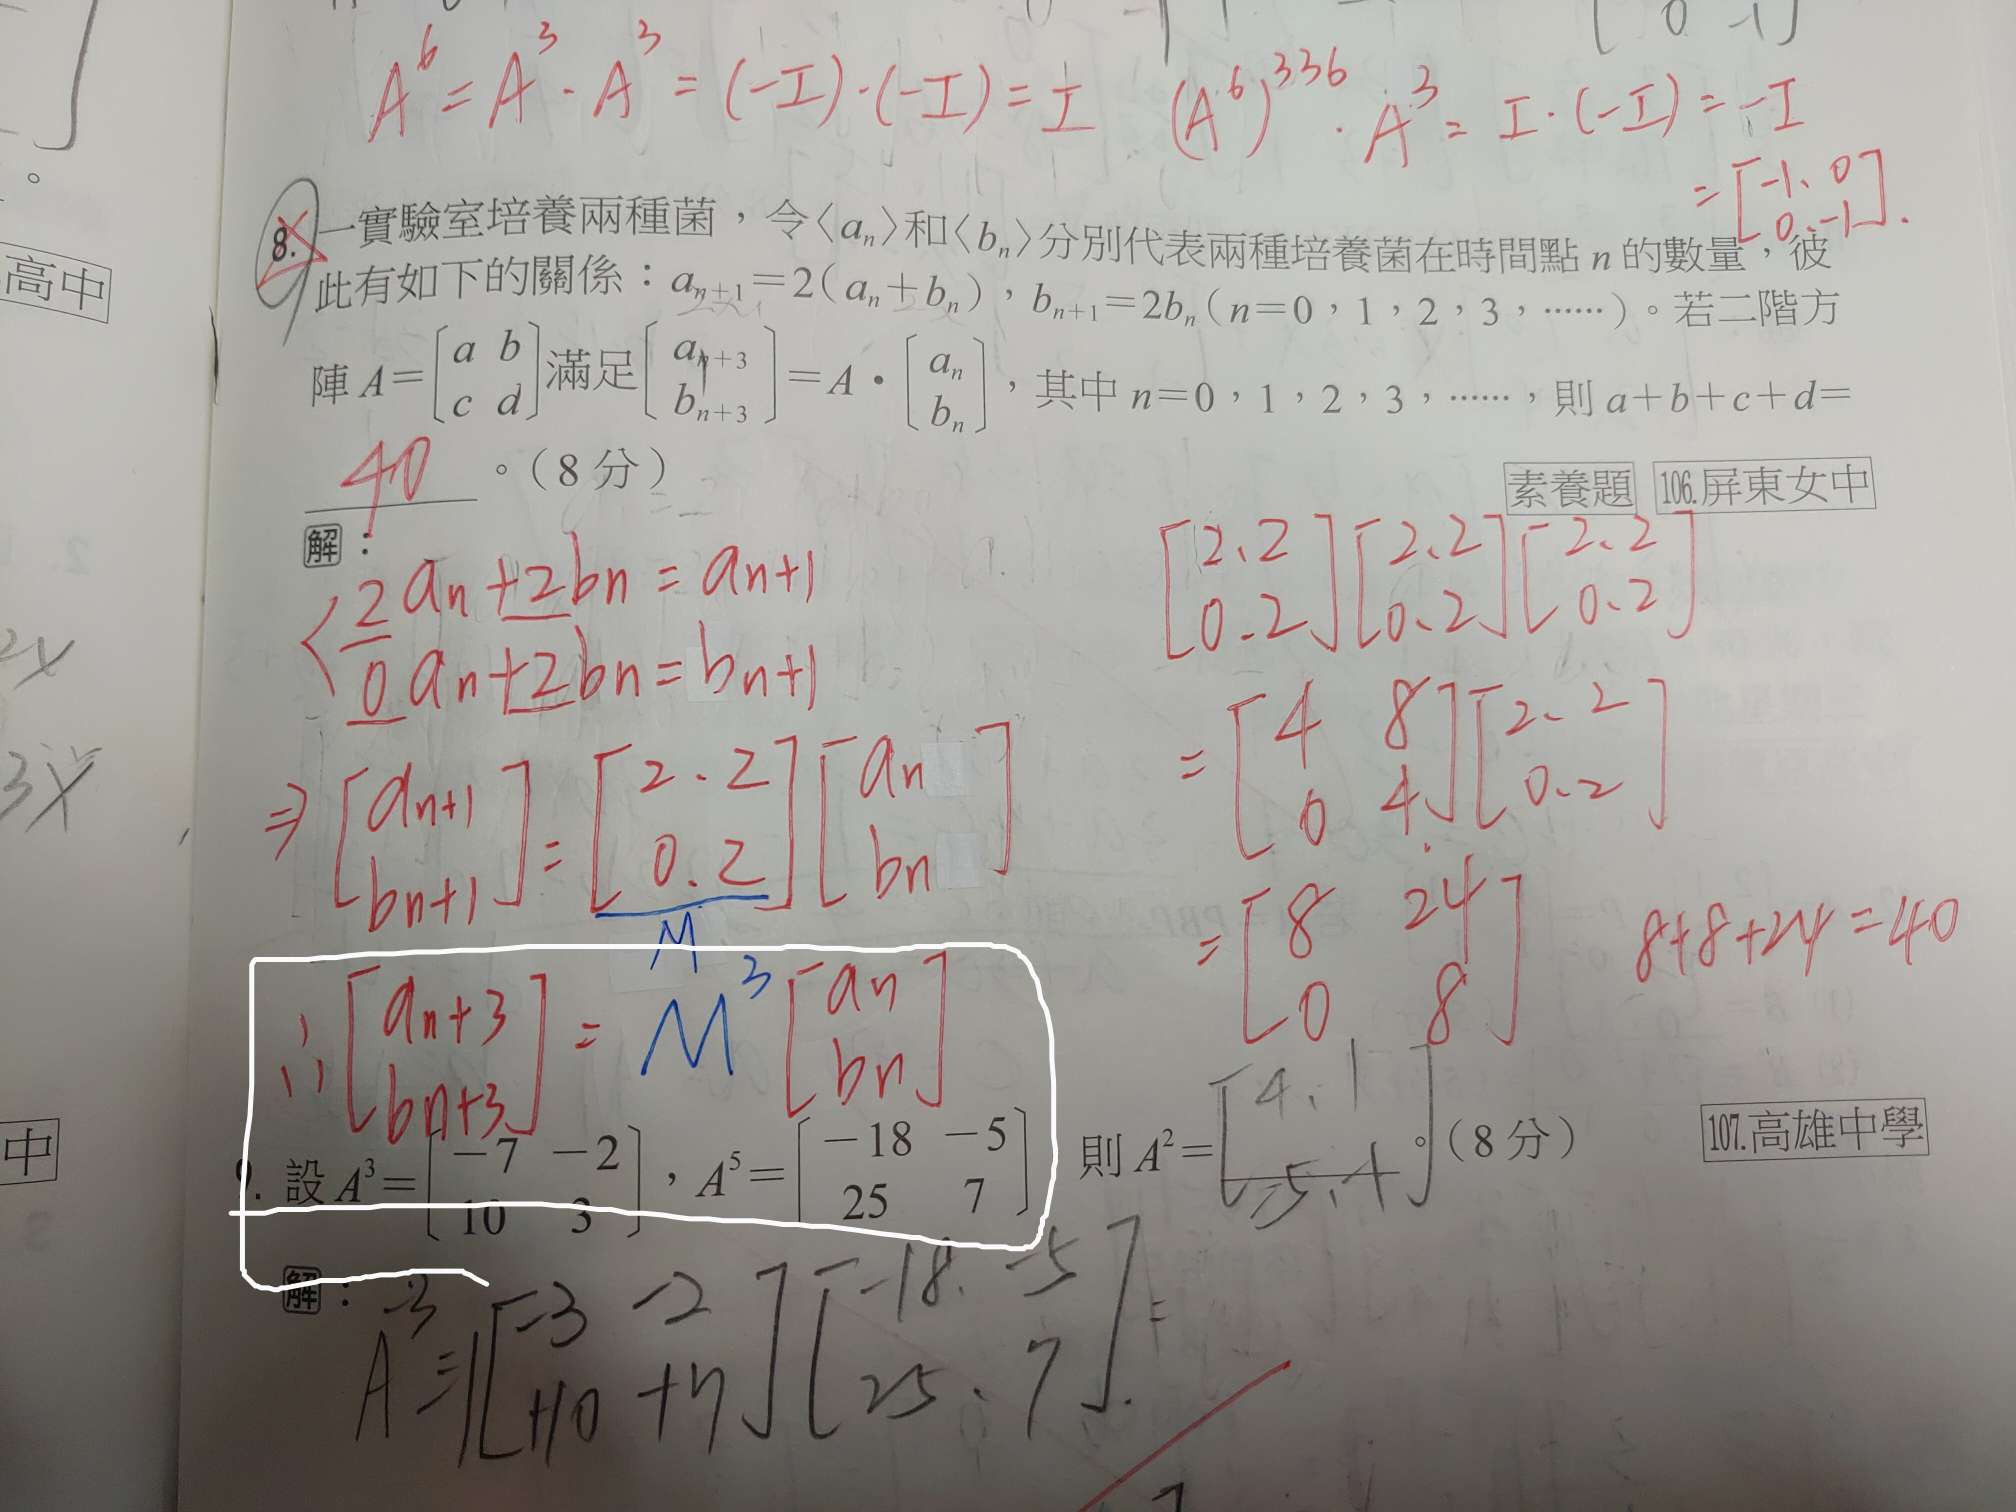 0 -1
A⁶ = A³ · A³ = (-I) · (-I) = I (A⁶)³³⁶ · A³ = I · (-I) = -I
= [-1、0
0、-1].
。
高中
8. 一實驗室培養兩種菌，令〈aₙ〉和〈bₙ〉分別代表兩種培養菌在時間點 n 的數量，彼
此有如下的關係：aₙ₊₁＝2（aₙ＋bₙ），bₙ₊₁＝2bₙ（n＝0，1，2，3，……）。若二階方
陣 A＝[a b
c d]滿足[aₙ₊₃
bₙ₊₃]＝A・[aₙ
bₙ]，其中 n＝0，1，2，3，……，則 a＋b＋c＋d＝
40 。（8 分）
素養題 106.屏東女中
解：
2aₙ+2bₙ = aₙ+1
0aₙ+2bₙ = bₙ+1
⇒ [aₙ+1
bₙ+1] = [2、2
0、2] [aₙ
bₙ]
M
∴ [aₙ+3
bₙ+3] = M³ [aₙ
bₙ]
[2、2
0、2] [2、2
0、2] [2、2
0、2]
= [4 8
0 4] [2、2
0、2]
= [8 24
0 8] 8+8+24=40
2x
3x
中
9. 設 A³＝[－7 －2
10 3]，A⁵＝[－18 －5
25 7] 則 A²＝[4、1
-5、-1]。（8 分）
107.高雄中學
解：
A⁻³ = [-3 -2
+10 +7] [-18、-5
25、7] =